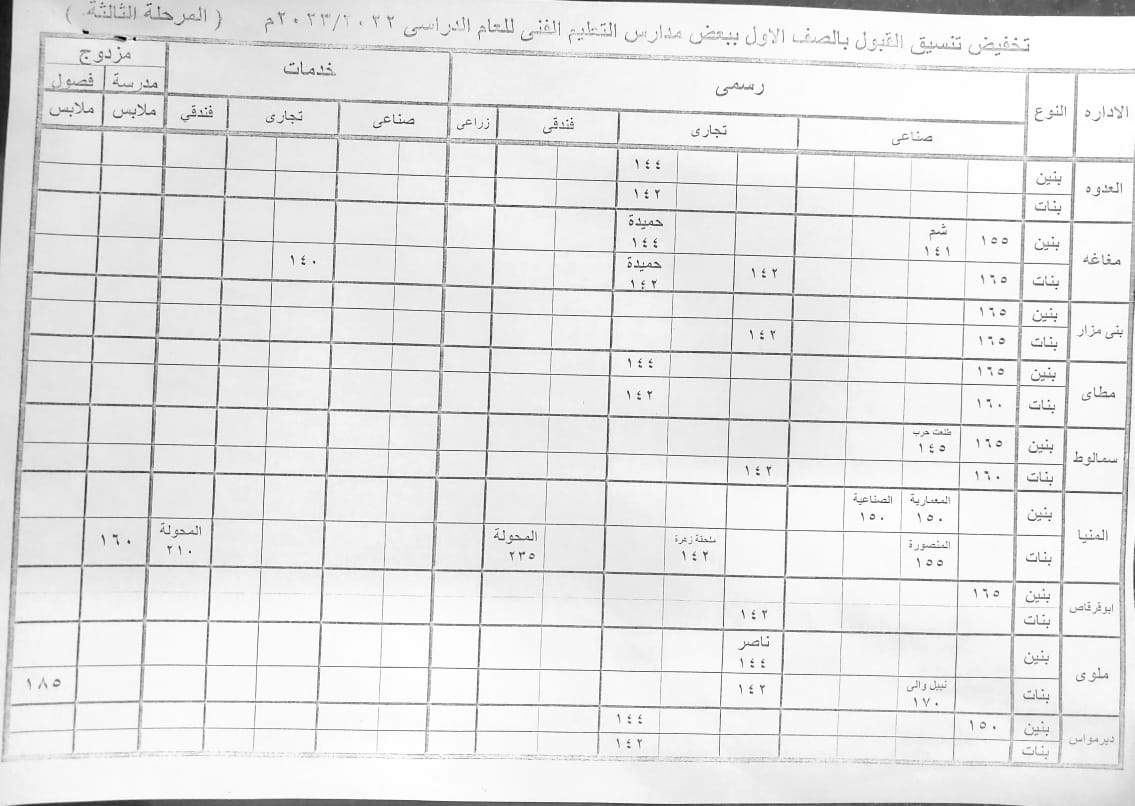 تخفيض تنسيق القبول بالصف الاول ببعض مدارس التعليم الفنى للعام الدراسى ٢٠٢٣/٢٠٢٢م ( المرحلة الثالثة )
الاداره النوع رسمى خدمات مزدوج
مدرسة فصول
صناعى تجارى فندقى زراعى صناعى تجارى فندقي ملابس ملابس
العدوه بنين ١٤٤
بنات ١٤٢
مغاغه بنين ١٥٥ شم ١٤١ حميدة ١٤٤
بنات ١٦٥ ١٤٢ حميدة ١٤٢ ١٤٠
بنى مزار بنين ١٦٥
بنات ١٦٥ ١٤٢
مطاى بنين ١٦٥ ١٤٤
بنات ١٦٠ ١٤٢
سمالوط بنين ١٦٥ طلعت حرب ١٤٥
بنات ١٦٠ ١٤٢
المنيا بنين المعمارية ١٥٠ الصناعية ١٥٠
بنات المنصورة ١٥٥ ملحقة زهرة ١٤٢ المحولة ٢٣٥ المحولة ٢١٠ ١٦٠
ابوقرقاص بنين ١٦٥
بنات ١٤٢
ملوى بنين ناصر ١٤٤
بنات نبيل والى ١٧٠ ١٤٢ ١٨٥
ديرمواس بنين ١٥٠ ١٤٤
بنات ١٤٢